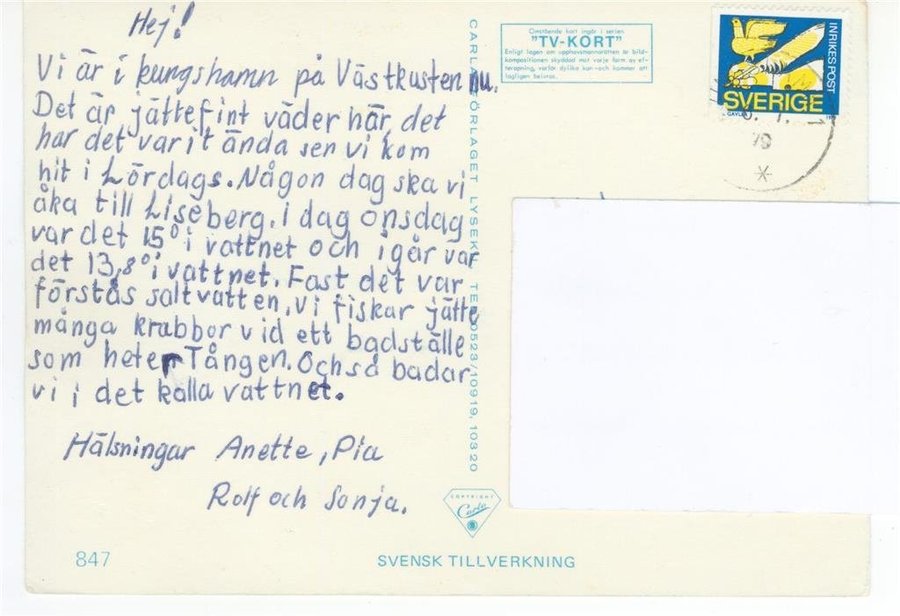 Hej!
Vi är i kungshamn på Västkusten nu.
Det är jättefint väder här, det
har det varit ända sen vi kom
hit i Lördags. Någon dag ska vi
åka till Liseberg. i dag onsdag
var det 15° i vattnet och igår var
det 13,8° i vattnet. Fast det var
förstås saltvatten. Vi fiskar jätte
många krabbor vid ett badställe
som heter Tången. Och så badar
vi i det kalla vattnet.
Hälsningar Anette, Pia
Rolf och Sonja.
847
CARLAFÖRLAGET LYSEKIL TEL 0523/10919, 10320
Omstående kort ingår i serien
"TV-KORT"
Enligt lagen om upphovsmannarätten är bild-
kompositionen skyddad mot varje form av ef-
terapning, varför dylika kan och kommer att
lagligen beivras.
INRIKES POST
SVERIGE
79
COPYRIGHT
Carla
SVENSK TILLVERKNING